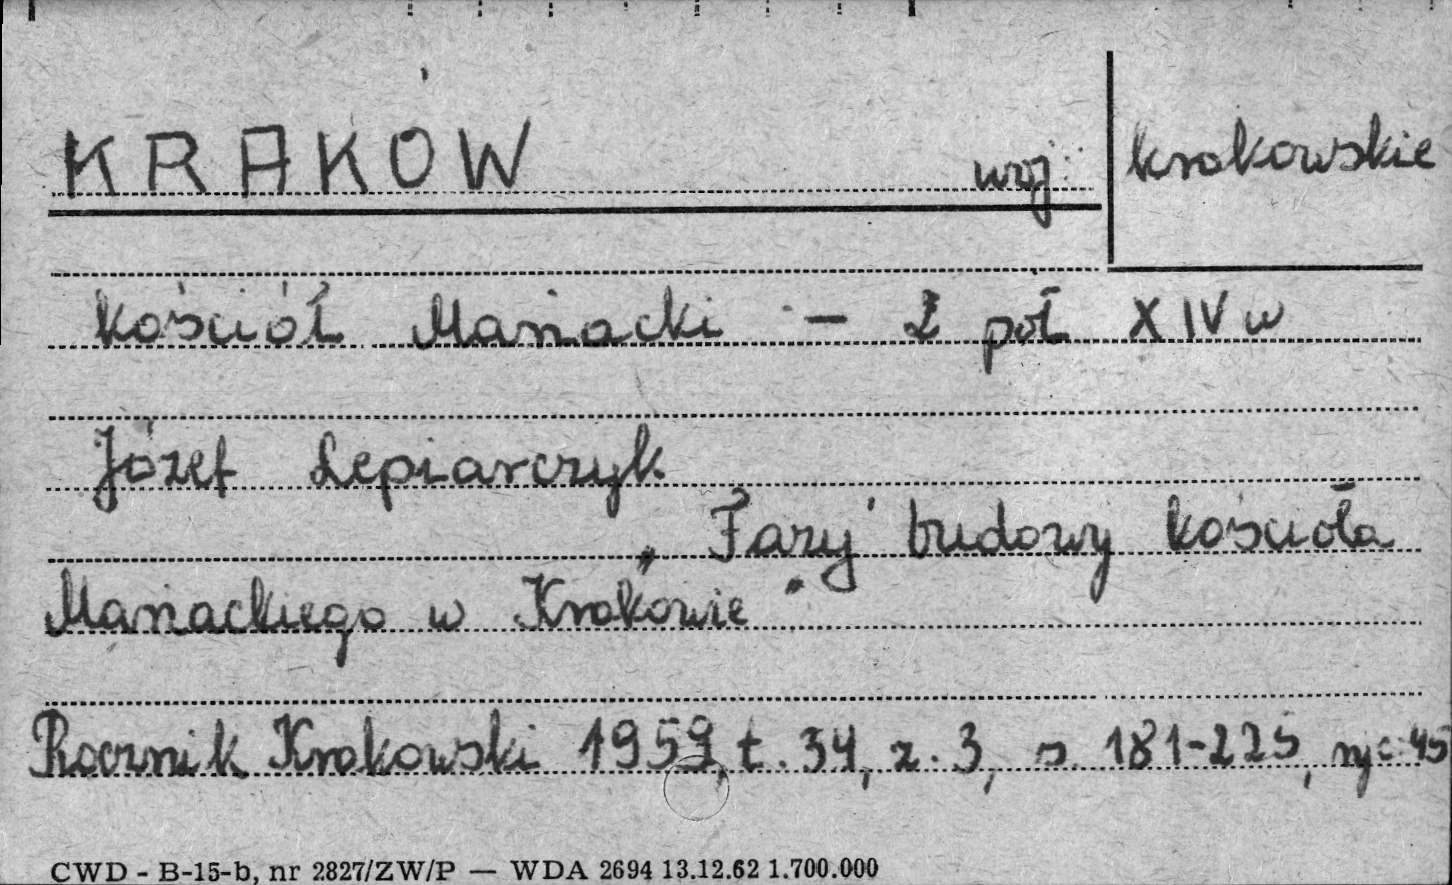 KRAKÓW woj. krakowskie
kościół Mariacki - 2 poł XIV w
Józef Lepiarczyk
„Fazy budowy kościoła
Mariackiego w Krakowie"
Rocznik Krakowski 1959, t. 34, z. 3, s. 181-225, ryc. 45
CWD - B-15-b, nr 2827/ZW/P — WDA 2694 13.12.62 1.700.000